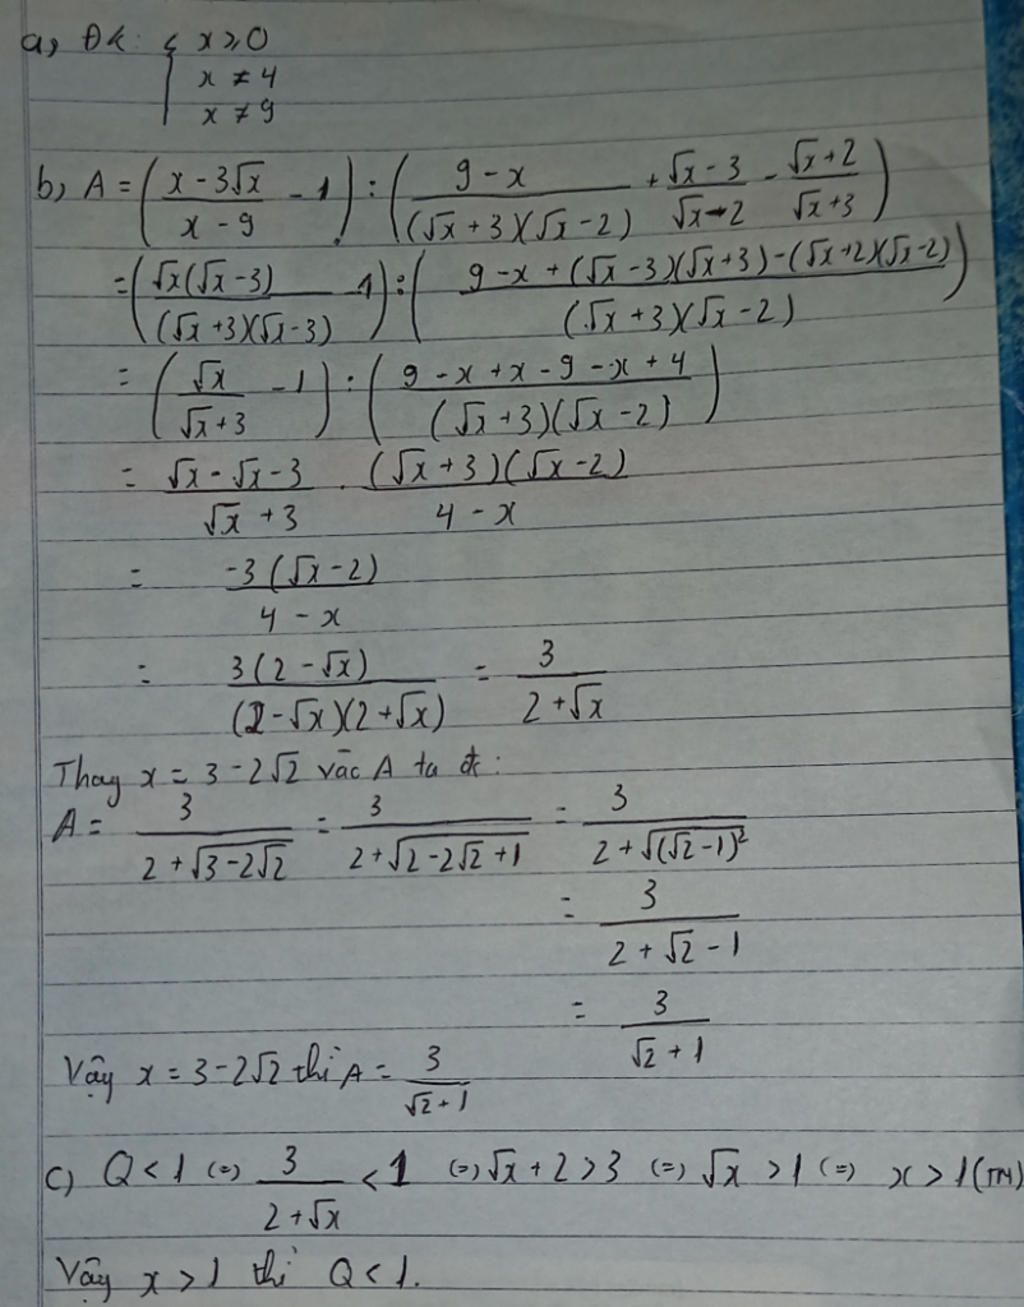 a, ĐK: { x ≥ 0
x ≠ 4
x ≠ 9
b, A = ( (x - 3√x)/(x - 9) - 1 ) : ( (9 - x)/((√x + 3)(√x - 2)) + (√x - 3)/(√x - 2) - (√x + 2)/(√x + 3) )
= ( (√x(√x - 3))/((√x + 3)(√x - 3)) - 1 ) : ( (9 - x + (√x - 3)(√x + 3) - (√x + 2)(√x - 2))/((√x + 3)(√x - 2)) )
= ( √x/(√x + 3) - 1 ) : ( (9 - x + x - 9 - x + 4)/((√x + 3)(√x - 2)) )
= (√x - √x - 3)/(√x + 3) . ((√x + 3)(√x - 2))/(4 - x)
= (-3(√x - 2))/(4 - x)
= (3(2 - √x))/((2 - √x)(2 + √x)) = 3/(2 + √x)
Thay x = 3 - 2√2 vào A ta đc:
A = 3/(2 + √(3 - 2√2)) = 3/(2 + √(2 - 2√2 + 1)) = 3/(2 + √((√2 - 1)²))
= 3/(2 + √2 - 1)
= 3/(√2 + 1)
Vậy x = 3 - 2√2 thì A = 3/(√2 + 1)
c) Q < 1 (=) 3/(2 + √x) < 1 (=) √x + 2 > 3 (=) √x > 1 (=) x > 1 (TM)
Vậy x > 1 thì Q < 1.